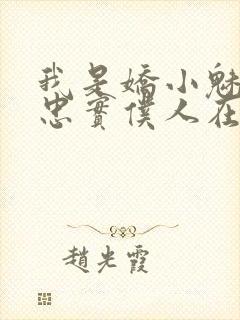 我是嬌小魅
忠實僕人在
趙光霞